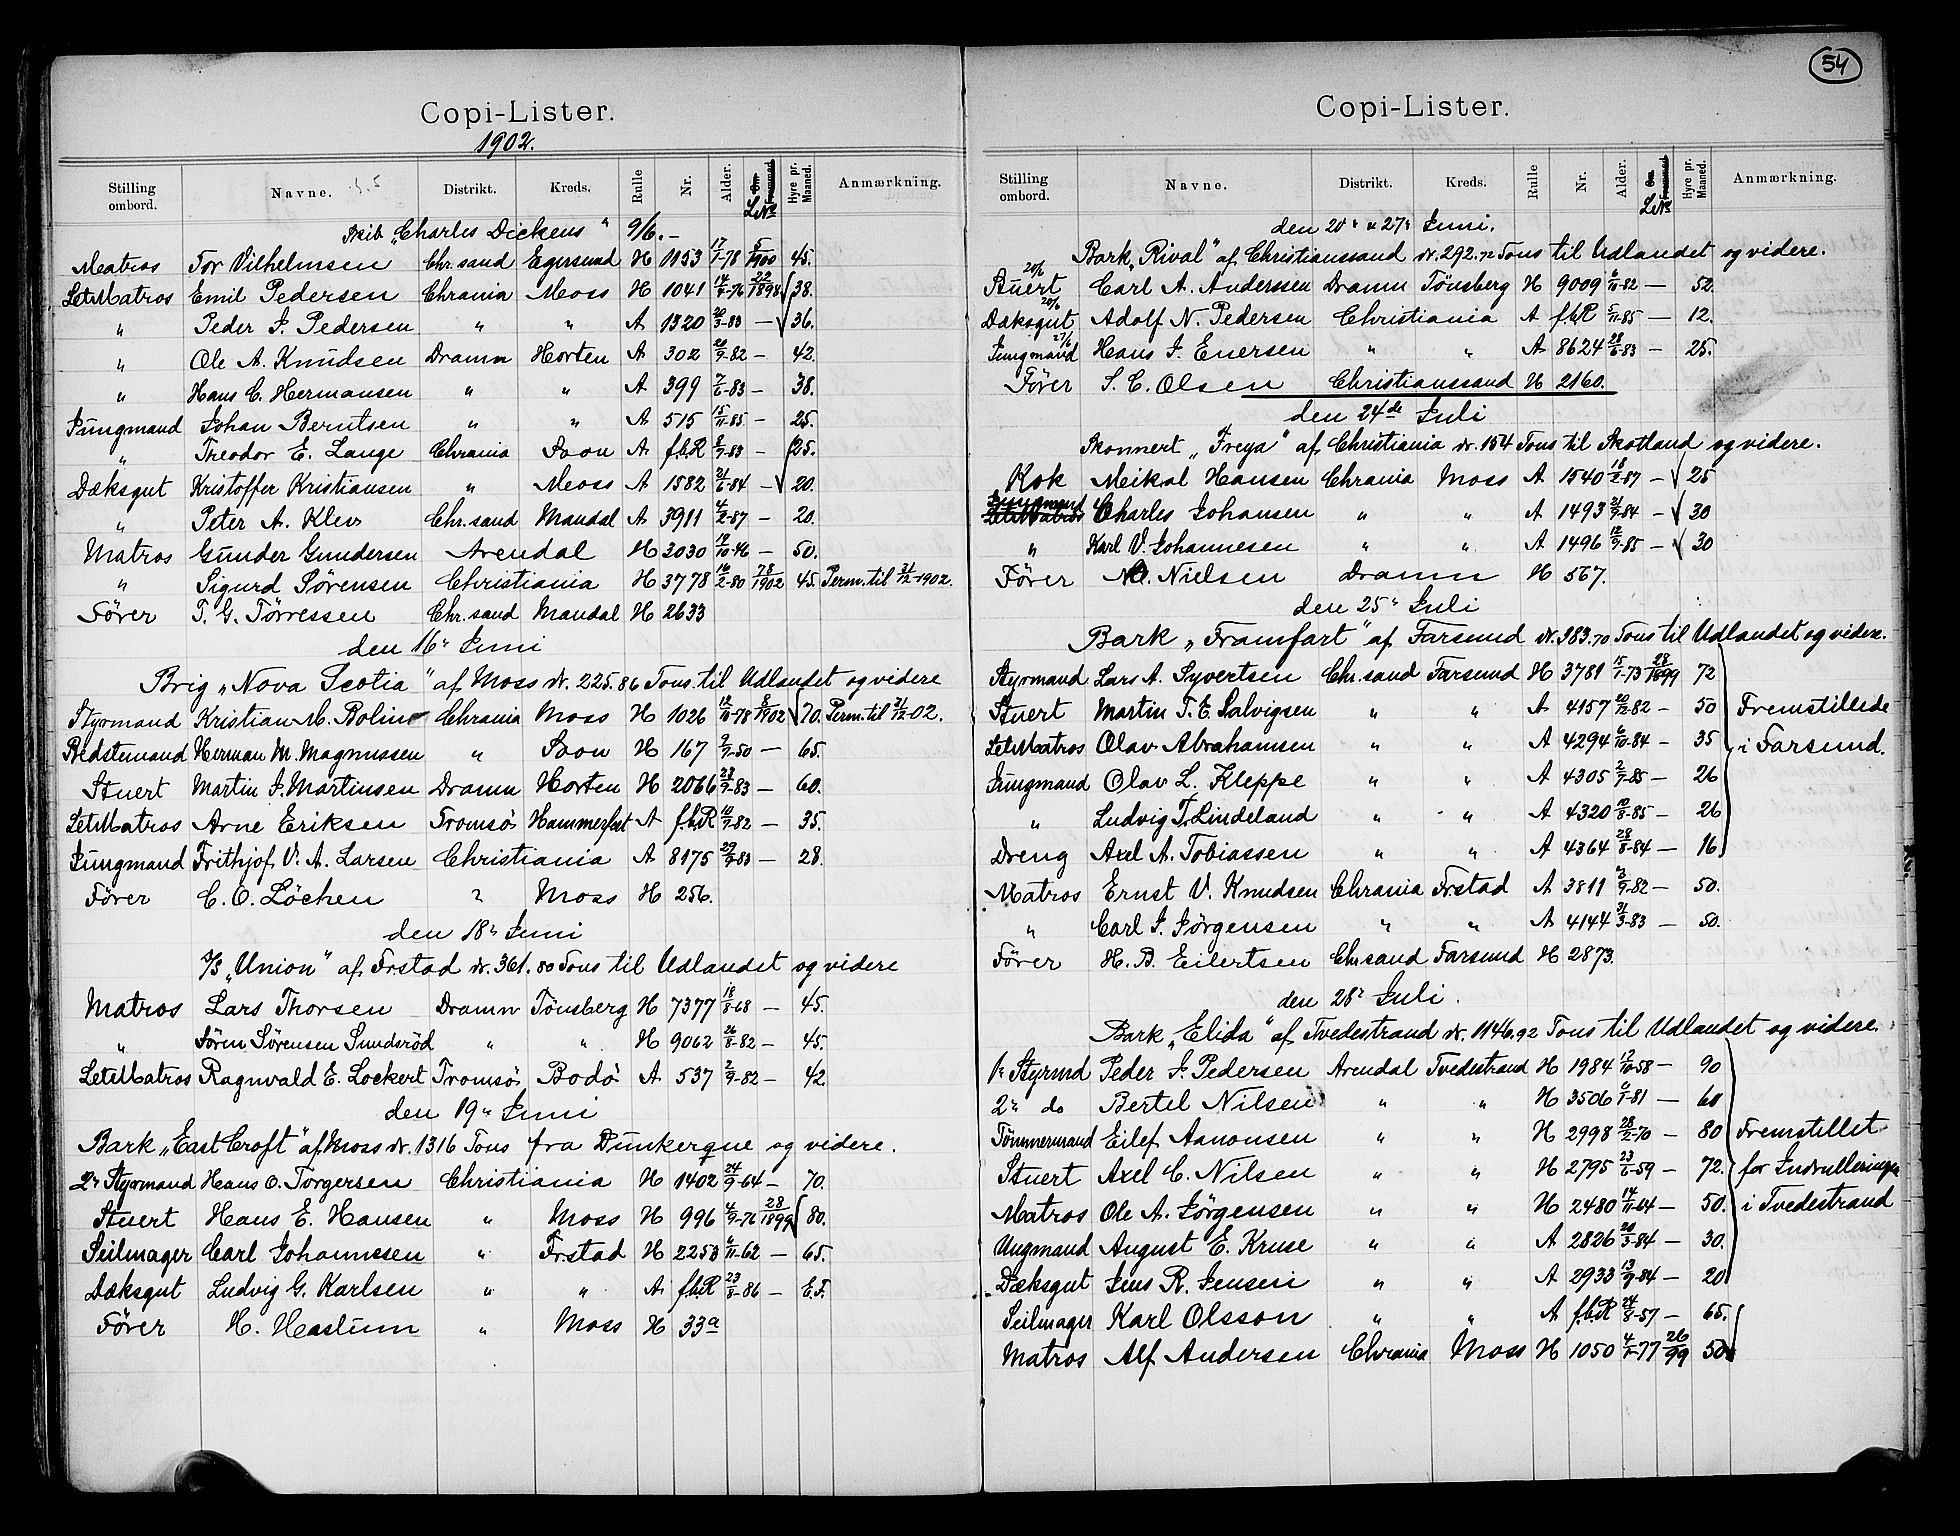 Copi-Lister.
1902.
Stilling ombord. Navne. Distrikt. Kreds. Rulle Nr. Alder. L.No Hyre pr. Maaned. Anmærkning.
Skib „Charles Dickens" 9/6.-
Matros Tor Vilhelmsen Chr.sand Egersund H 1153 17/1-78 5/1900 45.
LetMatros Emil Pedersen Chrania Moss H 1041 14/9-76 22/1898 38.
" Peder J. Pedersen " " A 1320 20/3-83 — 36.
" Ole A. Knudsen Dramn Horten A 302 20/9-82 — 42.
" Hans C. Hermansen " " A 399 7/6-83 — 38.
Jungmand Johan Berntsen " " A 515 15/11-85 — 25.
" Theodor E. Lange Chrania Soon A f.b.R 8/9-83 — 25.
Dæksgut Kristoffer Kristiansen " Moss A 1582 21/6-84 — 20.
" Peter A. Klev Chr.sand Mandal A 3911 4/2-87 — 20.
Matros Gunder Gundersen Arendal H 3030 19/10-46 — 50.
" Sigurd Sørensen Christiania H 3778 16/2-80 78/1902 45. Perm. til 31/12-1902.
Fører T. G. Tørressen Chr.sand Mandal H 2633
den 16" Juni
Brig „Nova Scotia" af Moss dr. 225.86 Tons til Udlandet og videre
Styrmand Kristian M. Bolin Chrania Moss H 1026 12/10-78 8/1902 70. Perm. til 31/12 02.
Bedstemand Herman M. Magnussen " Soon H 167 9/7-50 — 65.
Stuert Martin J. Martinsen Dramn Horten H 2066 28/9-83 — 60.
LetMatros Arne Eriksen Tromsø Hammerfest A f.b.R 10/9-82 — 35.
Jungmand Frithjof V. A. Larsen Christiania A 8175 29/9-83 — 28.
Fører C. O. Løchen " Moss H 256.
den 18" Juni
S/S „Union" af Frstad dr. 361.80 Tons til Udlandet og videre
Matros Lars Thorsen Dramn Tønsberg H 7377 18/8-68 — 45.
" Søren Sørensen Sundrød " " H 9062 26/8-82 — 45.
LetMatros Ragnvald E. Lockert Tromsø Bodø A 537 2/9-82 — 42.
den 19" Juni
Bark „East Croft" af Moss dr. 1316 Tons fra Dunkerque og videre.
2" Styrmand Hans O. Torgersen Christiania H 1402 24/9-64 — 70.
Stuert Hans E. Hansen " Moss H 996 4/9-76 28/1899 80.
Seilmager Carl Johannesen " Fr.stad H 2250 6/11-62 — 65.
Dæksgut Ludvig G. Karlsen " " A f.b.R 23/8-86 — E.F.
Fører H. Haslum " Moss H 33a
54
Copi-Lister.
Stilling ombord. Navne. Distrikt. Kreds. Rulle Nr. Alder. L.No Hyre pr. Maaned. Anmærkning.
den 20" & 27" Juni.
Bark „Rival" af Christianssand dr. 292.72 Tons til Udlandet og videre.
20/6 Stuert Carl A. Anderssen Dramn Tønsberg H 9009 6/11-82 — 52.
20/6 Dæksgut Adolf N. Pedersen Christiania A f.b.R 5/11-85 — 12.
27/6 Jungmand Hans J. Enersen " " A 8624 28/6-83 — 25.
Fører S. C. Olsen Christianssand H 2160.
den 24de Juli
Skonnert „Freya" af Christiania dr. 154 Tons til Skotland og videre.
Kok Meikal Hansen Chrania Moss A 1540 18/2-87 — 25
Jungmand Charles Johansen " " A 1493 21/9-84 — 30
" Karl V. Johannesen " " A 1496 12/9-85 — 30
Fører N. Nielsen Dramn H 567.
den 25" Juli
Bark „Framfart" af Farsund dr. 383.70 Tons til Udlandet og videre.
Styrmand Lars A. Syvertsen Chr.sand Farsund H 3781 15/1-73 28/1899 72
Stuert Martin T. E. Salvigsen " " A 4157 20/12-82 — 50 Fremstillede
LetMatros Olav Abrahamsen " " A 4294 6/10-84 — 35 i Farsund.
Jungmand Olav L. Kleppe " " A 4305 2/9-85 — 26
" Ludvig T. Lindeland " " A 4320 10/8-85 — 26
Dreng Axel A. Tobiassen " " A 4364 28/8-84 — 16
Matros Ernst V. Knudsen Chrania Frstad A 3811 3/9-82 — 50.
" Carl J. Jørgensen " " A 4144 31/3-83 — 50.
Fører H. B. Eilertsen Chr.sand Farsund H 2873.
den 28" Juli.
Bark „Elida" af Tvedestrand dr. 1146.92 Tons til Udlandet og videre.
1" Styrmd Peder J. Pedersen Arendal Tvedestrand H 1984 12/10-58 — 90
2" do Bertel Nilsen " " H 3506 6/1-81 — 60
Tømmermand Eilef Aanonsen " " H 2998 28/2-70 — 80 Fremstillet
Stuert Axel C. Nilsen " " H 2795 23/6-59 — 72. for Indrulleringen
Matros Ole A. Jørgensen " " H 2480 14/11-64 — 50. i Tvedestrand
Ungmand August E. Kruse " " A 2826 20/3-84 — 30.
Dæksgut Jens R. Jensen " " A 2933 13/9-84 — 20
Seilmager Karl Olsson " " A f.b.R 24/8-57 — 65.
Matros Alf Andersen Chrania Moss H 1050 4/1-77 26/99 50.